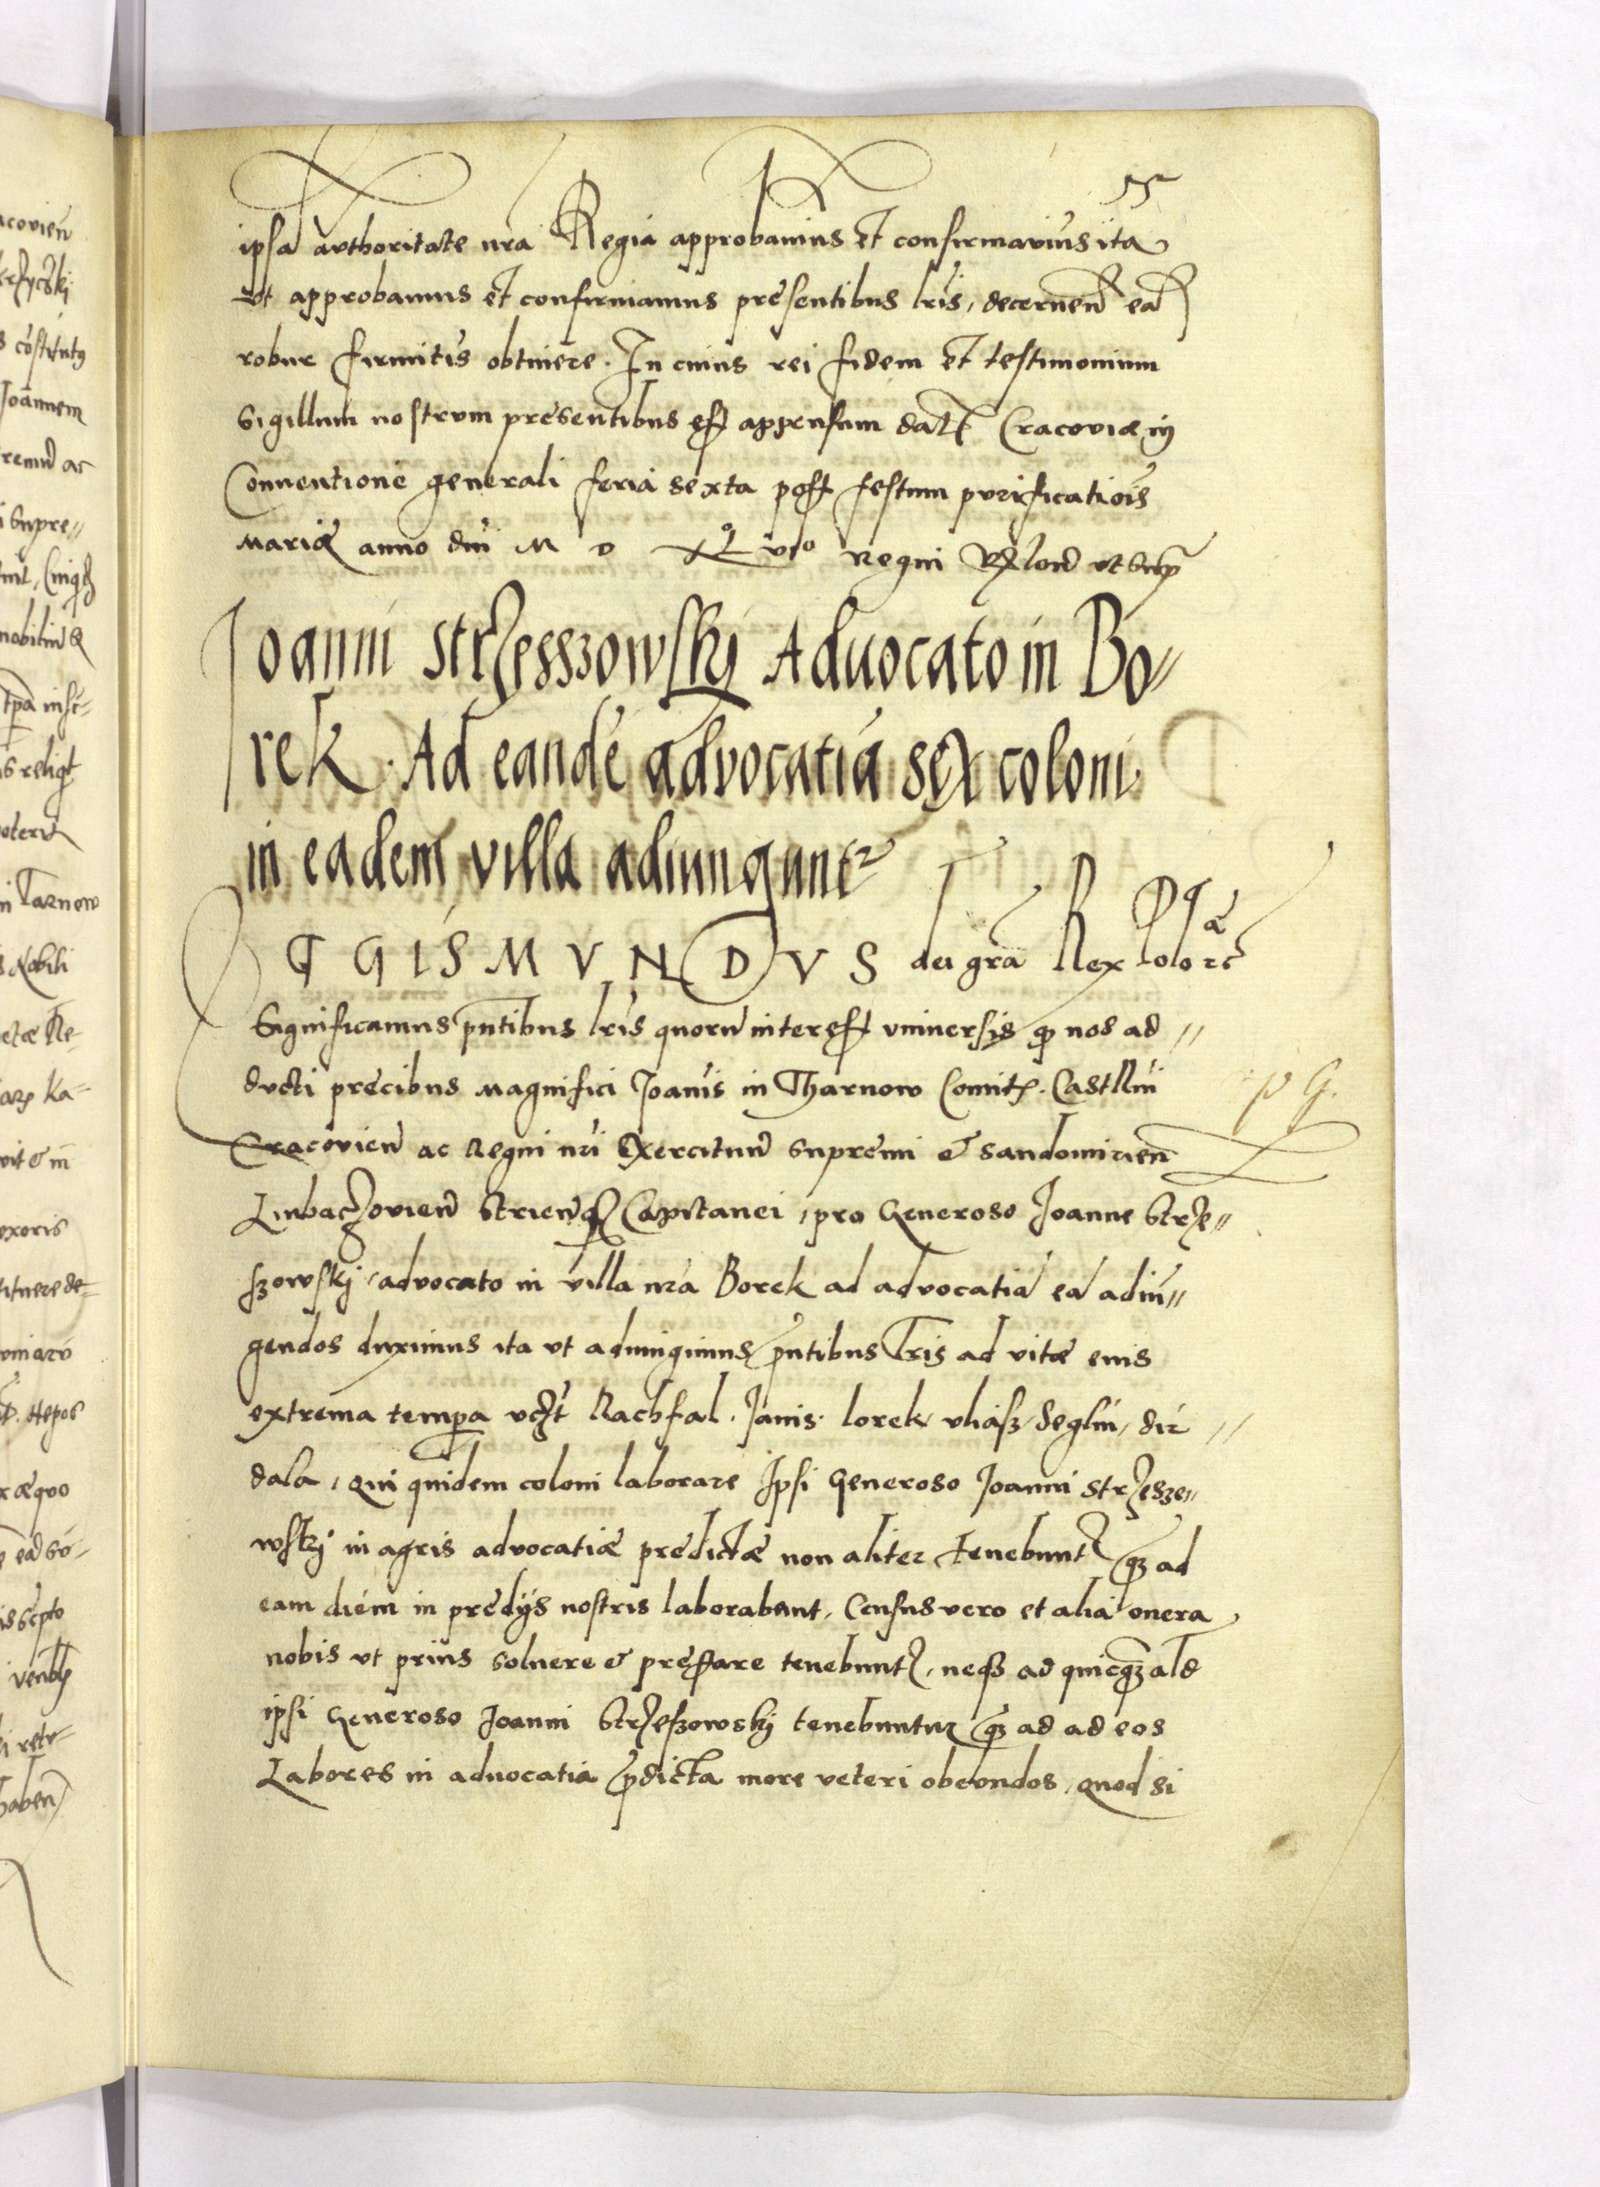 ipsa authoritate nra Regia approbavims et confirmavius ita
ut approbamus et confirmamus presentibus lris, decernen ea
robur firmitis obtinere. In cuius rei fidem et testimonium
Sigillum nostrum presentibus est appensum dat Cracoviæ in
Conventione generali feria sexta post festum purificatiois
Mariæ anno dni M D XL vto Regni ut Sup
Joanni Strzesszowskij Aduocato in Bo//
rek. Ad eande advocatia sex coloni
in eadem villa adiungunt
SIGISMVNDVS dei gra Rex Polo
Significamus pntibus lris quoru interest vniuersis q nos ad//
ducti precibus Magnifici Joanis in Tharnow Comit. Castllni
Cracovien ac Regni nri Exercituu Supremi & Sandomirien
Liubaczovien Strienq Capitanei, pro Generoso Joanne Strze//
szowskij, advocato in villa nra Borek ad advocatia ea adiu//
gendos duximus ita ut adiungimus pntibus lris ad vitæ eius
extrema tempa vczt Rachfal. Janis. lorek Seglin, dir//
dala, qui quidem coloni laborare Ipsi Generoso Joanni Strzesze//
wskj in agris advocatiæ predictæ non aliter tenebunt q ad
eam diem in predijs nostris laborabant, Census vero et alia onera
nobis ut prius soluere & prestare tenebunt, neq ad quicq alď
ipsi Generoso Joanni Strzeszowskj tenebuntur q ad ad eos
Labores in aduocatia pdicta more veteri obeundos, quod si